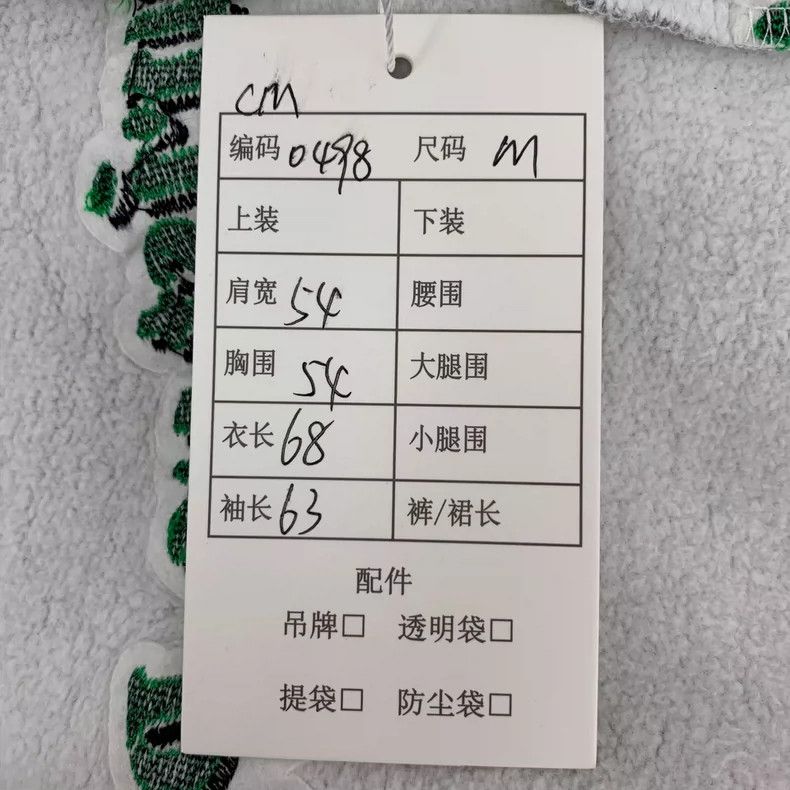 CM
编码 0498 尺码 M
上装 下装
肩宽 54 腰围
胸围 54 大腿围
衣长 68 小腿围
袖长 63 裤/裙长
配件
吊牌□ 透明袋□
提袋□ 防尘袋□